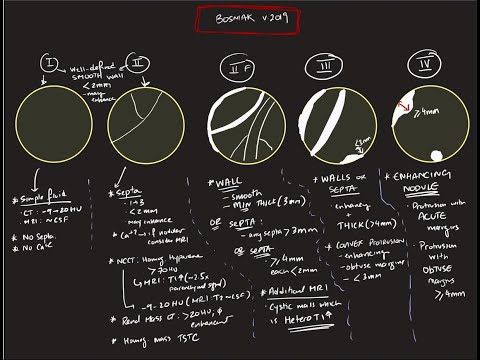 BOSNIAK v.2019
I
II
II F
III
IV
Well-defined
SMOOTH wall
< 2mm
- may
enhance
≥4mm
≤3mm
* Simple fluid
- CT: -9-20HU
- MRI: ~ CSF
* No Septa
* No Ca²⁺
* Septa
- 1→3
- < 2mm
- may enhance
* Ca²⁺
consider MRI
* NCCT: Homog. Hyperdense
> 70HU
MRI: T1↑ (~2.5x
parenchymal signal)
- -9-20HU (MRI: T2~CSF)
* Renal Mass CT: >20HU; ∅
enhancement
* Homog. mass TSTC
* WALL
- Smooth
MIN THICK (3mm)
OR SEPTA:
- any septa > 3mm
OR SEPTA
- ≥ 4mm
each < 2mm
* Additional MRI
- Cystic mass which
is Hetero T1↑
* WALLS or
SEPTA
- enhancing
+
THICK (>4mm)
* CONVEX PROTRUSION
- enhancing
- obtuse margins
- < 3mm
* ENHANCING
NODULE
- Protrusion with
ACUTE
margins
- Protrusion
with
OBTUSE
margins
≥ 4mm